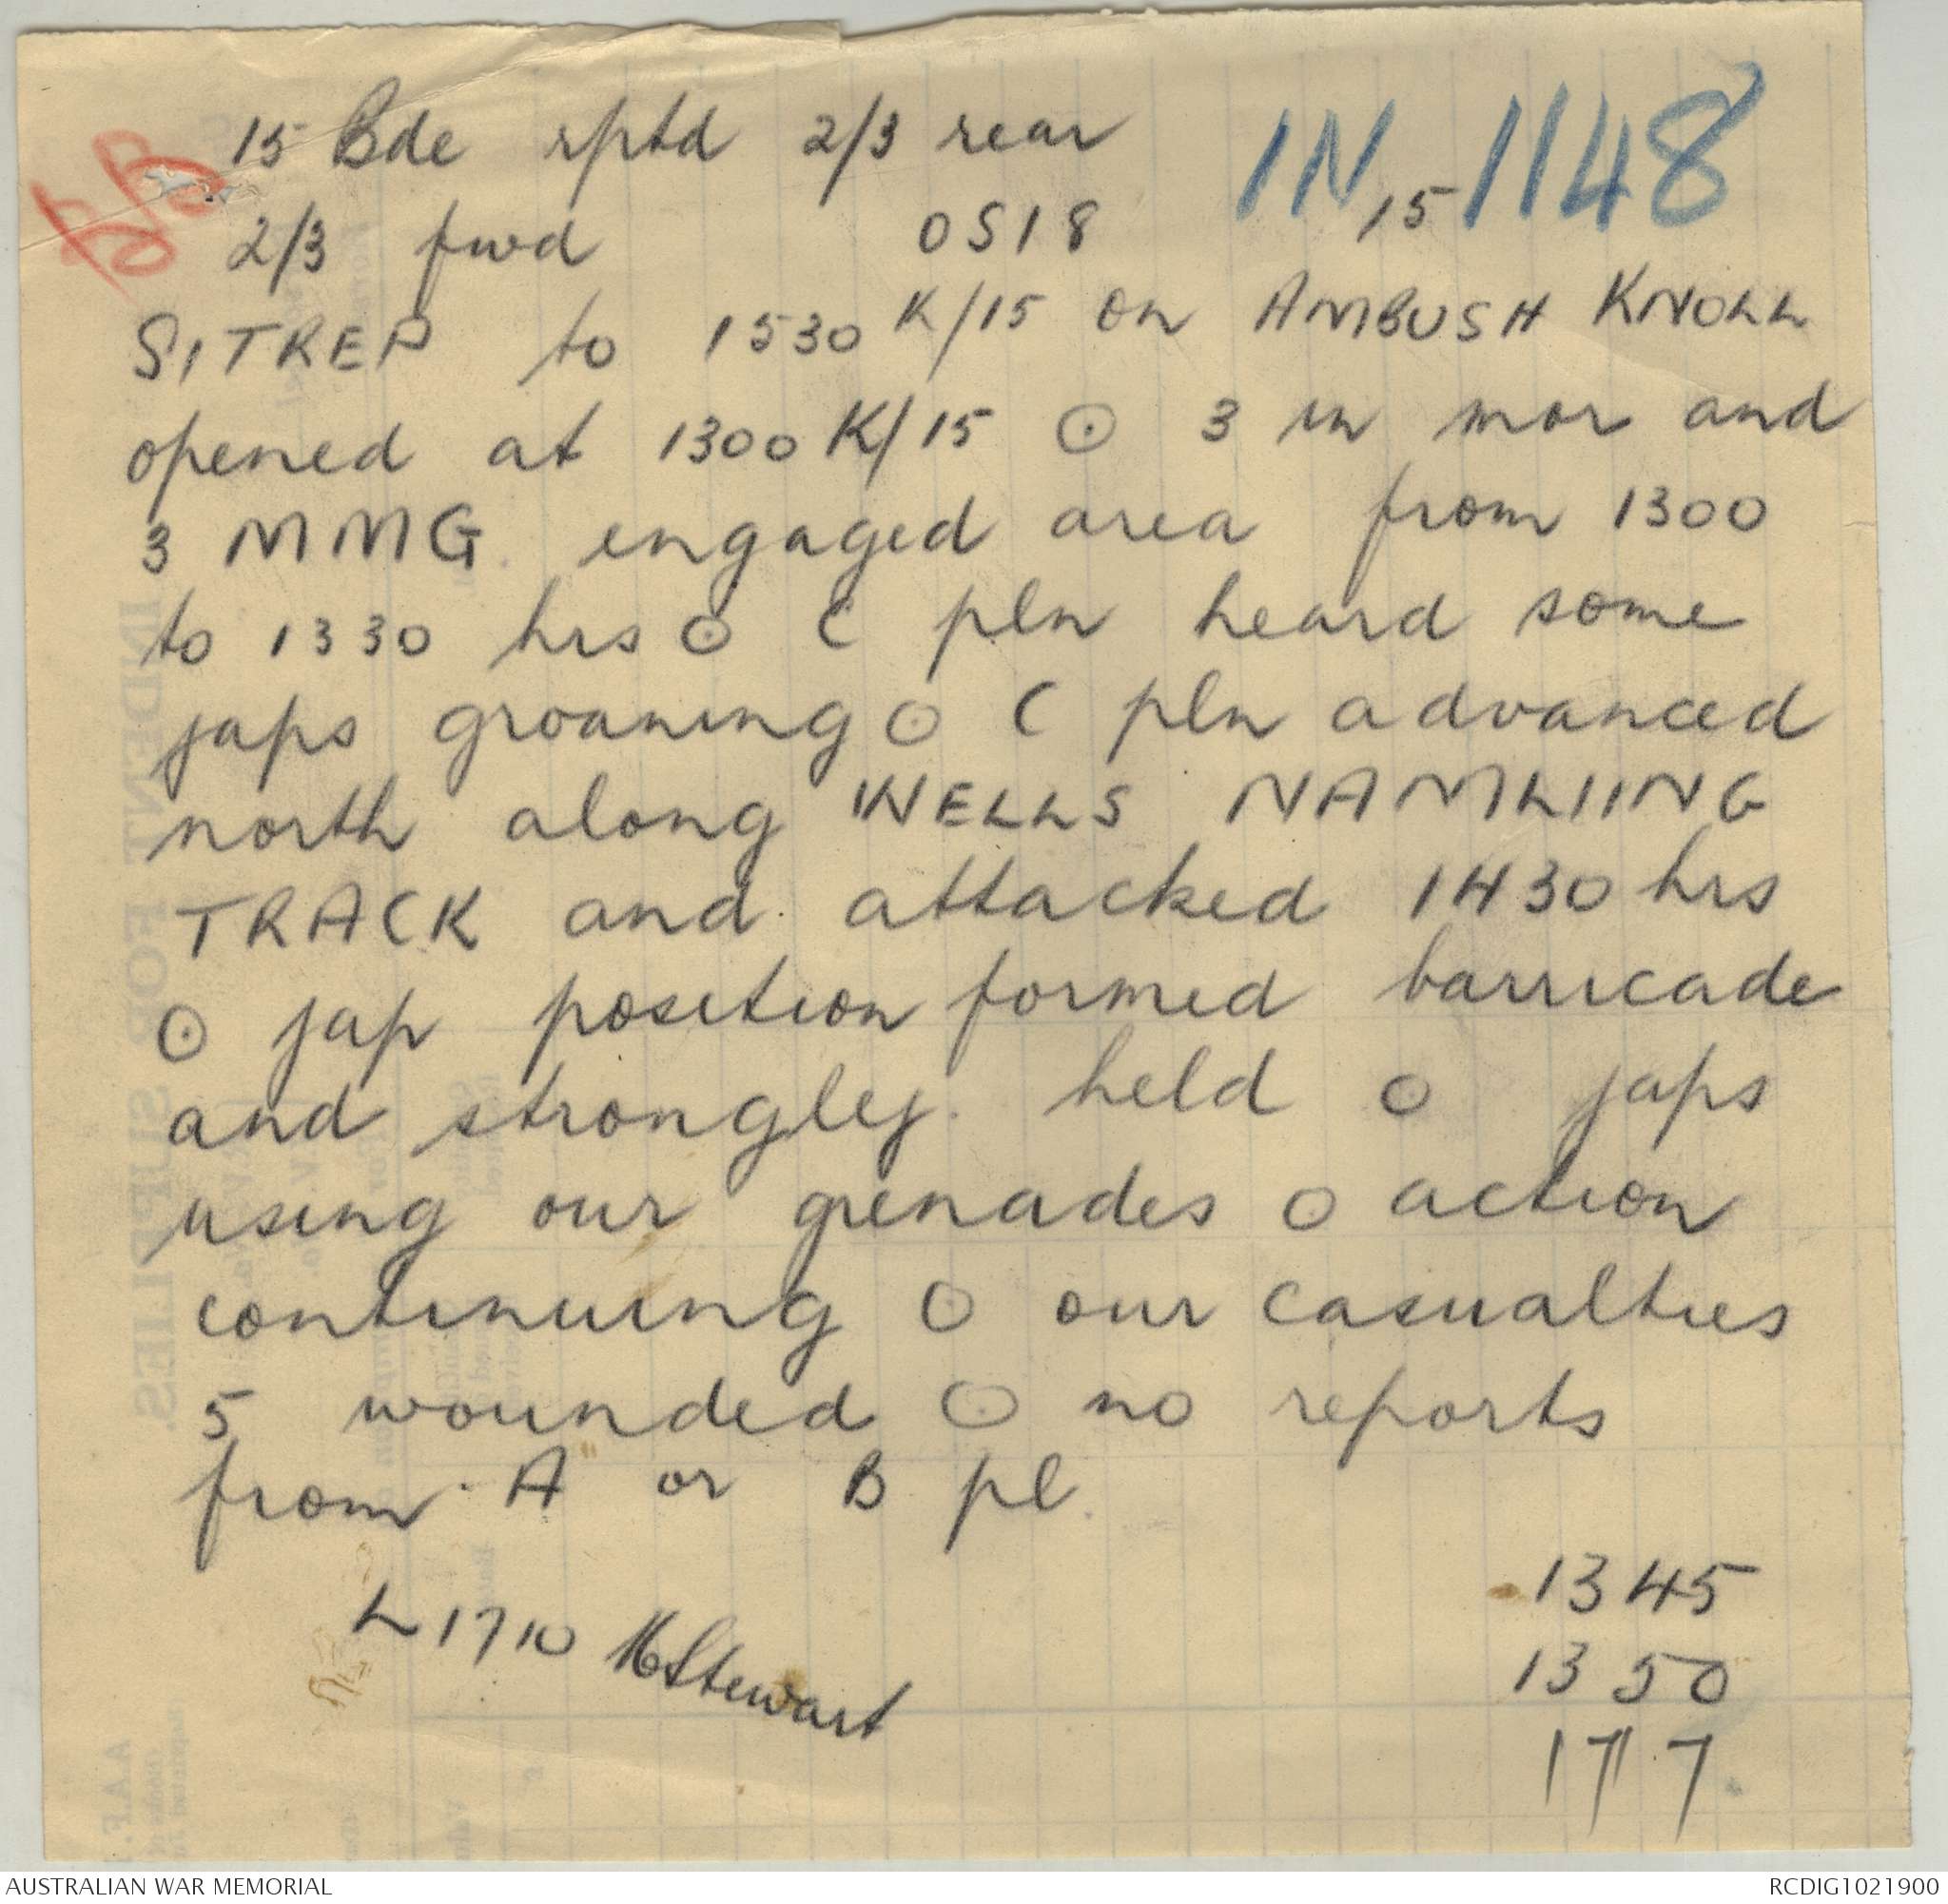 15 Bde rptd 2/3 rear
IN 1148
15
2/3 fwd OS18
SITREP to 1530 K/15 on AMBUSH KNOLL
opened at 1300 K/15 ⊙ 3 in mor and
3 MMG engaged area from 1300
to 1330 hrs ⊙ C pln heard some
japs groaning ⊙ C pln advanced
north along WELLS NAMLIING
TRACK and attacked 1430 hrs
⊙ jap position formed barricade
and strongley held ⊙ japs
using our grenades ⊙ action
continuing ⊙ our casualties
5 wounded ⊙ no reports
from A or B pl
1345
L 1710 Stewart
1350
1717
INDENT FOR SUPPLIES.
AUSTRALIAN WAR MEMORIAL
RCDIG1021900